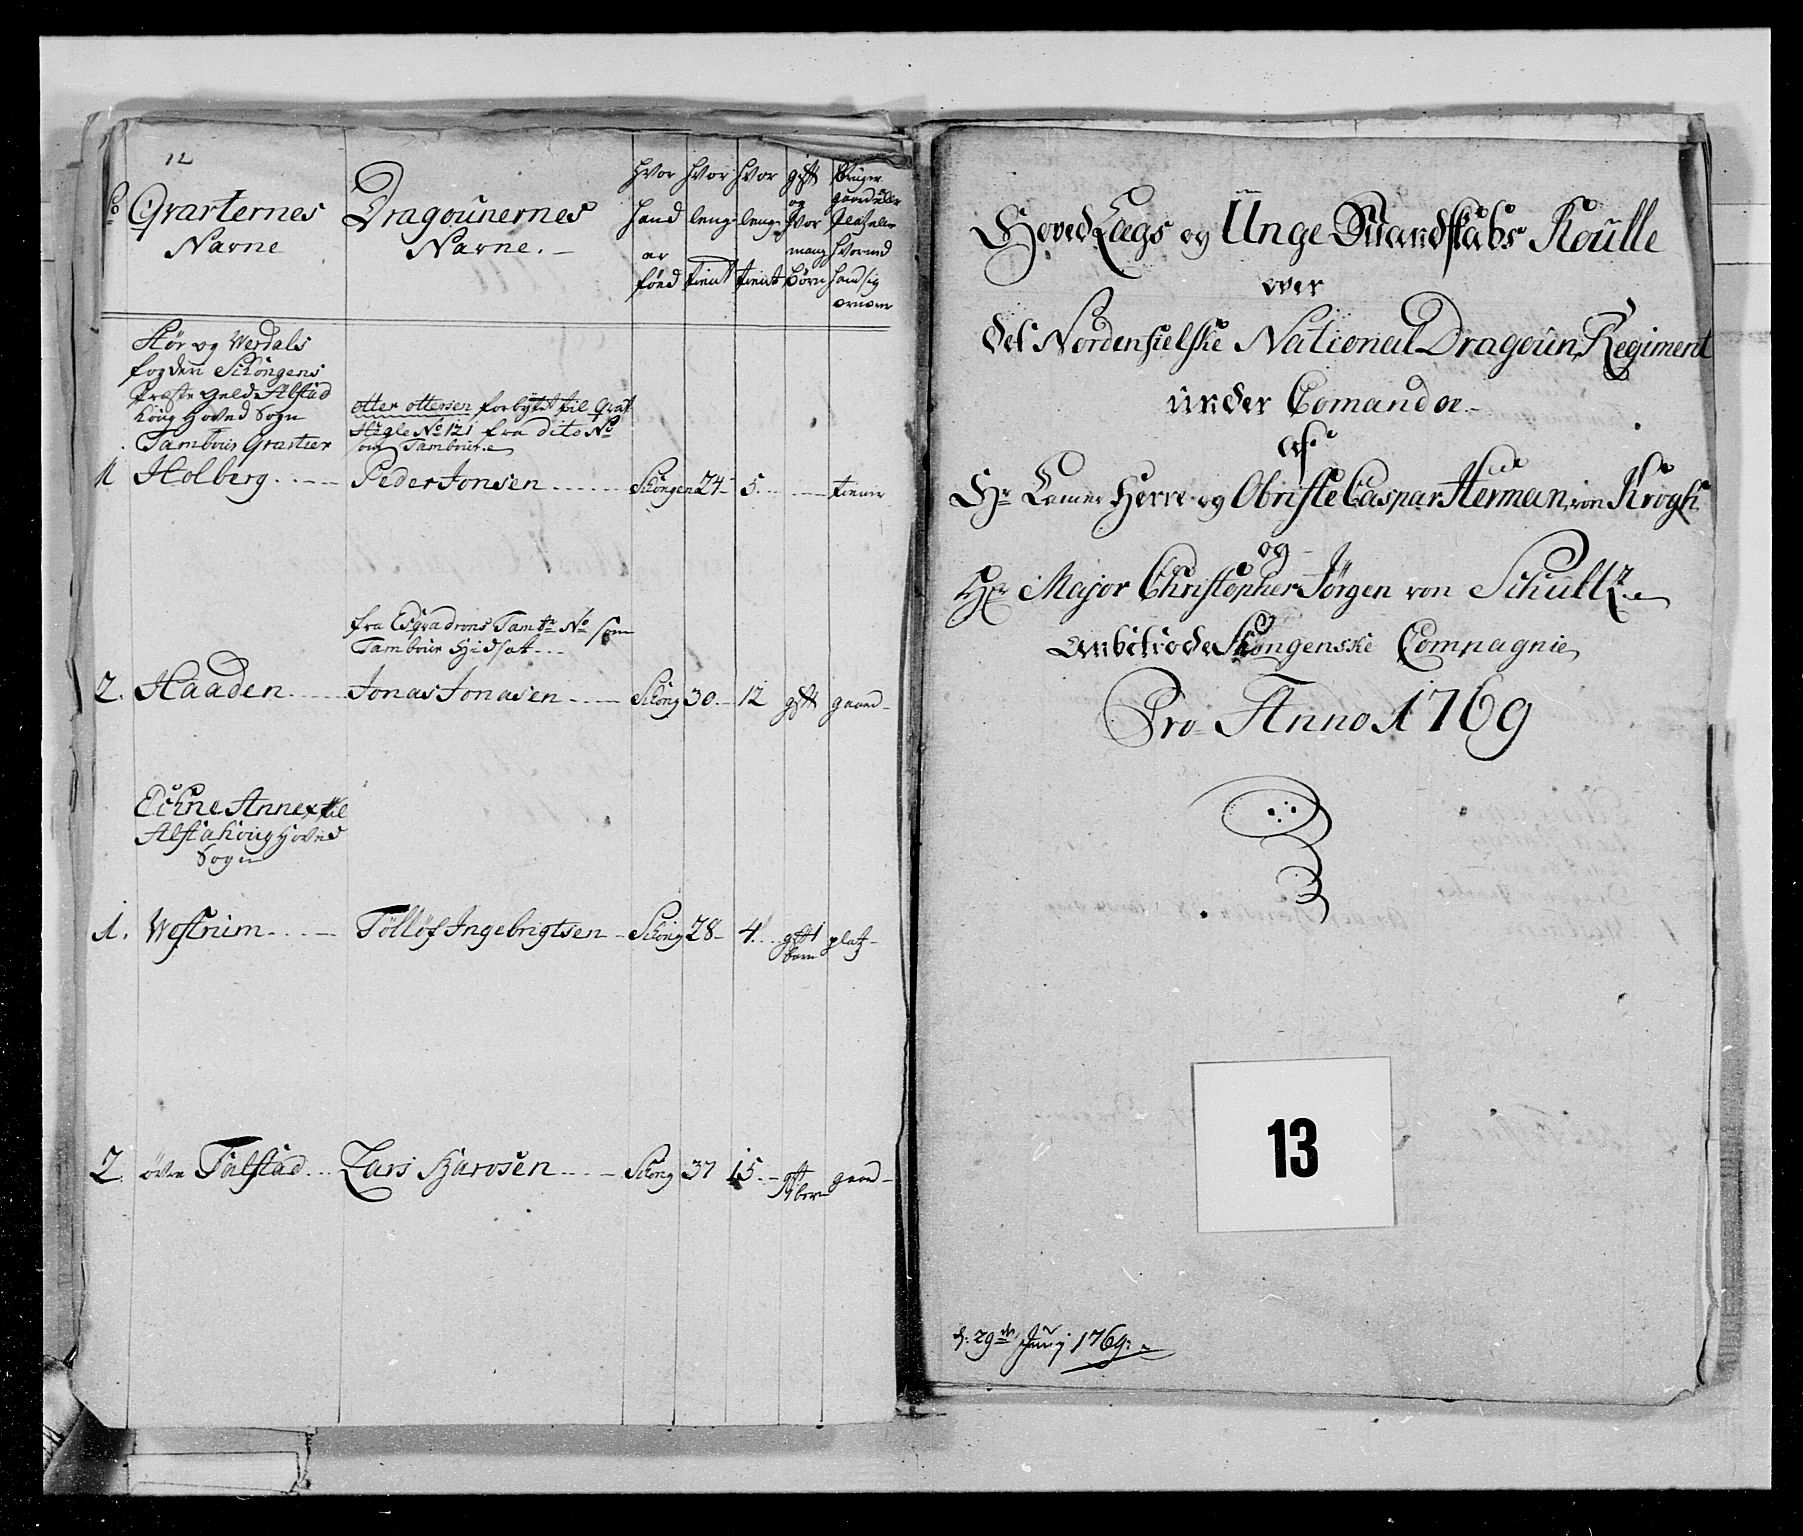 12
No
Qvarternes
Navne
Dragounernes
Navne.
hvor
hand
er
föed
hvor
leng
tient
hvor
leng
tient
gift
og
hvor
mang
börn
Bruger
gaard eller
hvormed
hand sig
ernærer
Stör og Werdals
fogderi Schöngens
Præste Gield Alstad
Houg Hoved Sogn
Tambour Qvarter
otter ottersen forbytet til Qvart
Högle No 121 fra dito No
som Tambour
1 Holberg Peder Jonsen Schöngen 24 5 tiener
fra Esqvadrons Tamb No som
Tambour Hidsat
2. Haaden Jonas Jonasen Schöng 30 12 gift gaard
Echne Annex til
Alstahoug Hoved
Sogn
1. Westrum Tölløf Ingebrigtsen Schöng 28 4 gift 1 barn platz
2. övre Talstad Lars Hjarosen Schöng 37 15 gift gaard
Hoved Lægs og Unge Mandskabs Roulle
over
det Nordenfielske National Dragoun Regiment
under Comando
af
Hr Camer Herre og Obriste Caspar Herman von Krogh
og
Hr Major Christopher Jörgen von Schultz
anbetroede Skongenske Compagnie
Pro Anno 1769
13
d: 29de Junij 1769